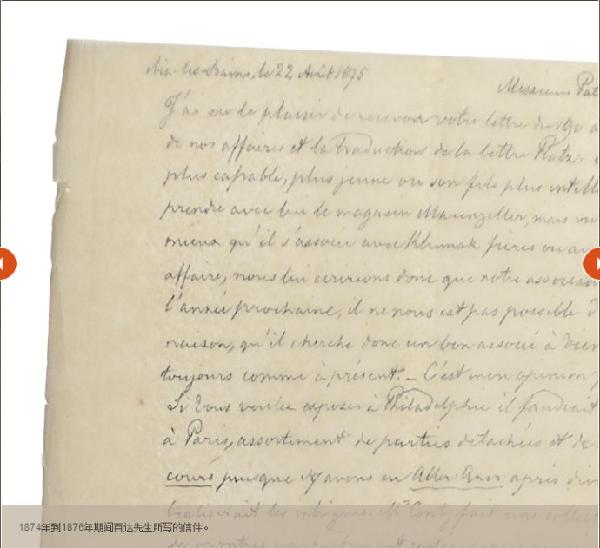 Aix-les-Bains, le 22 Août 1875
Messieurs Pat
J'ai eu le plaisir de recevoir votre lettre du
de nos affaires et la traduction de la lettre
plus capable, plus jeune ou son fils plus intell
prendre avec lui le magasin mais
mieux qu'il s'associe avec frères ou
affaire, nous lui écrirons donc que notre associat
l'année prochaine, il ne nous est pas possible d
raison, qu'il cherche donc un bon associé à Vien
toujours comme à présent. _ C'est mon opinion
Si vous voulez exposer à Philadelphie il faudrait
à Paris, assortiment de parties détachées et de
cours puisque avons en après
les M. fait une
de montres
1874年到1876年期间百达先生所写的信件。